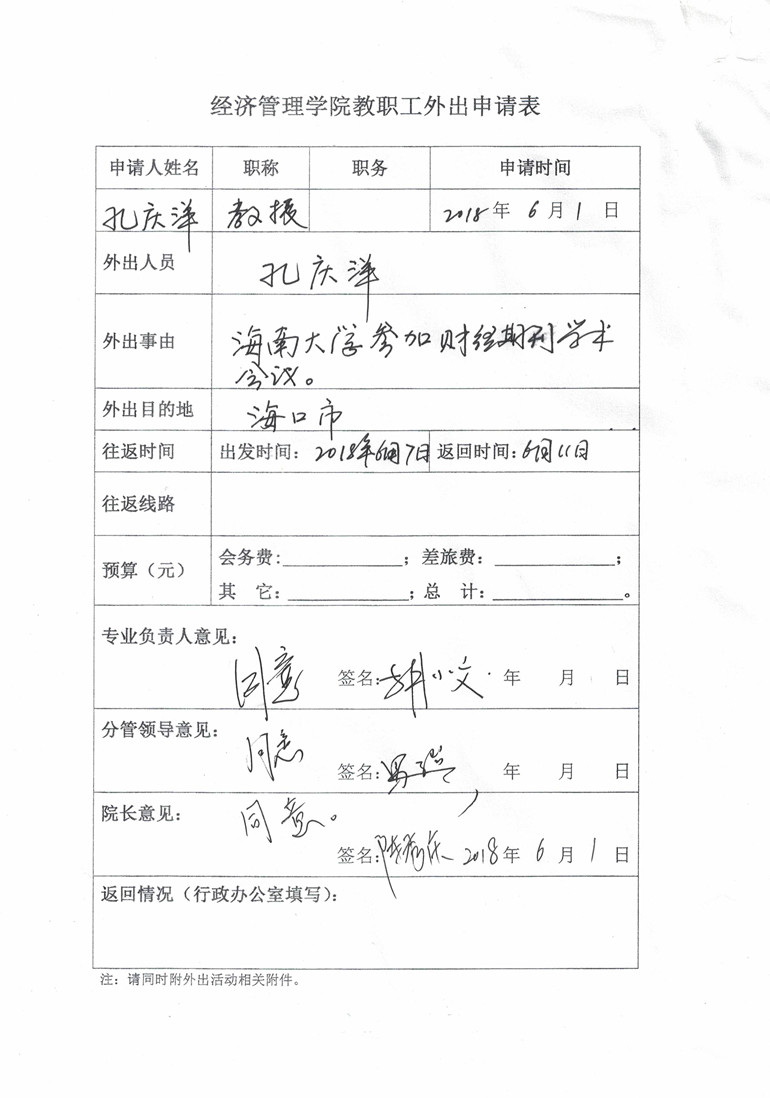 经济管理学院教职工外出申请表
申请人姓名 职称 职务 申请时间
孔庆洋 教授 2018年 6月1日
外出人员 孔庆洋
外出事由 海南大学参加财经期刊学术
会议。
外出目的地 海口市
往返时间 出发时间：2018年6月7日 返回时间：6月11日
往返线路
预算（元） 会务费：____________；差旅费：____________；
其 它：____________；总 计：____________。
专业负责人意见：
同意 签名： 小文 年 月 日
分管领导意见：
同意 签名： 年 月 日
院长意见： 同意。
签名： 2018年 6月1日
返回情况（行政办公室填写）：
注：请同时附外出活动相关附件。